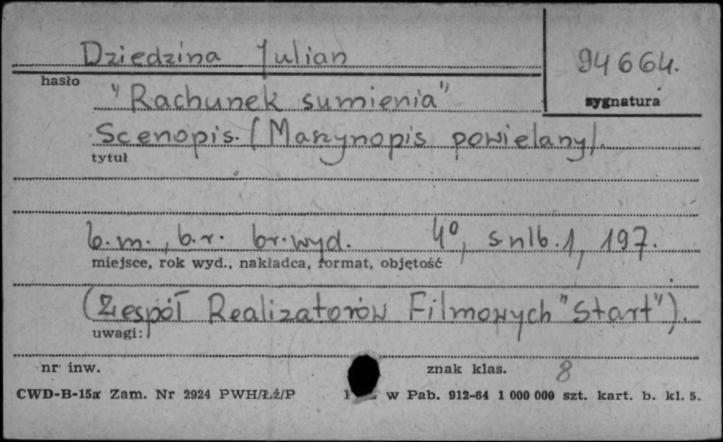 Dziedzina Julian 94664.
hasło
"Rachunek sumienia" sygnatura
Scenopis. (Maszynopis powielany).
tytuł
b.m., b.r. br.wyd. 4⁰, s.nlb.1, 197.
miejsce, rok wyd., nakładca, format, objętość
(Zespół Realizatorów Filmowych "Start").
uwagi:
nr inw. znak klas. 8
CWD-B-15a Zam. Nr 2924 PWH/Łź/P w Pab. 912-64 1 000 000 szt. kart. b. kl. 5.